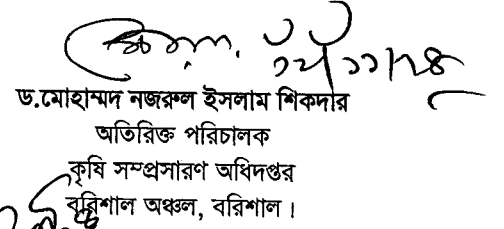 ড.মোহাম্মদ নজরুল ইসলাম শিকদার
অতিরিক্ত পরিচালক
কৃষি সম্প্রসারণ অধিদপ্তর
বরিশাল অঞ্চল, বরিশাল।